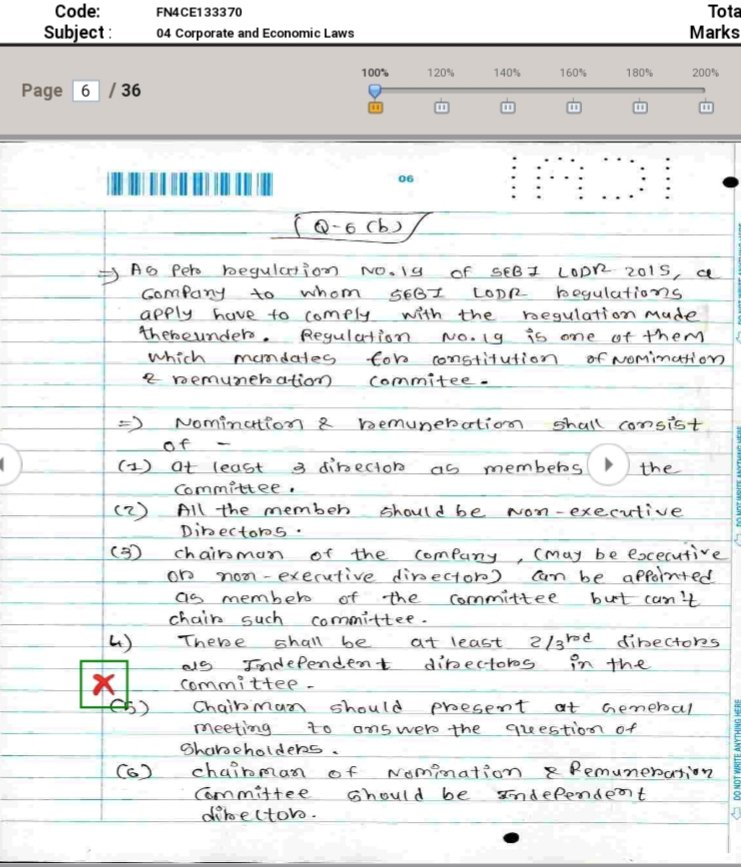 Code: FN4CE133370 Tota
Subject : 04 Corporate and Economic Laws Marks
100% 120% 140% 160% 180% 200%
Page 6 / 36
06
Q-6 (b)
=) As per regulation No.19 of SEBI LODR 2015, a
company to whom SEBI LODR regulations
apply have to comply with the regulation made
thereunder. Regulation No.19 is one of them
which mandates for constitution of Nomination
& remuneration commitee.
=) Nomination & remuneration shall consist
of -
(1) at least 3 director as members the
committee.
(2) All the member should be Non-executive
Directors.
(3) chairman of the company, (may be excecutive
or non-executive director) can be appointed
as member of the committee but can't
chair such committee.
4) There shall be at least 2/3rd directors
as Independent directors in the
committee.
(5) Chairman should present at General
meeting to answer the question of
Shareholders.
(6) chairman of Nomination & Remuneration
Committee should be Independent
director.
DO NOT WRITE ANYTHING HERE
DO NOT WRITE ANYTHING HERE